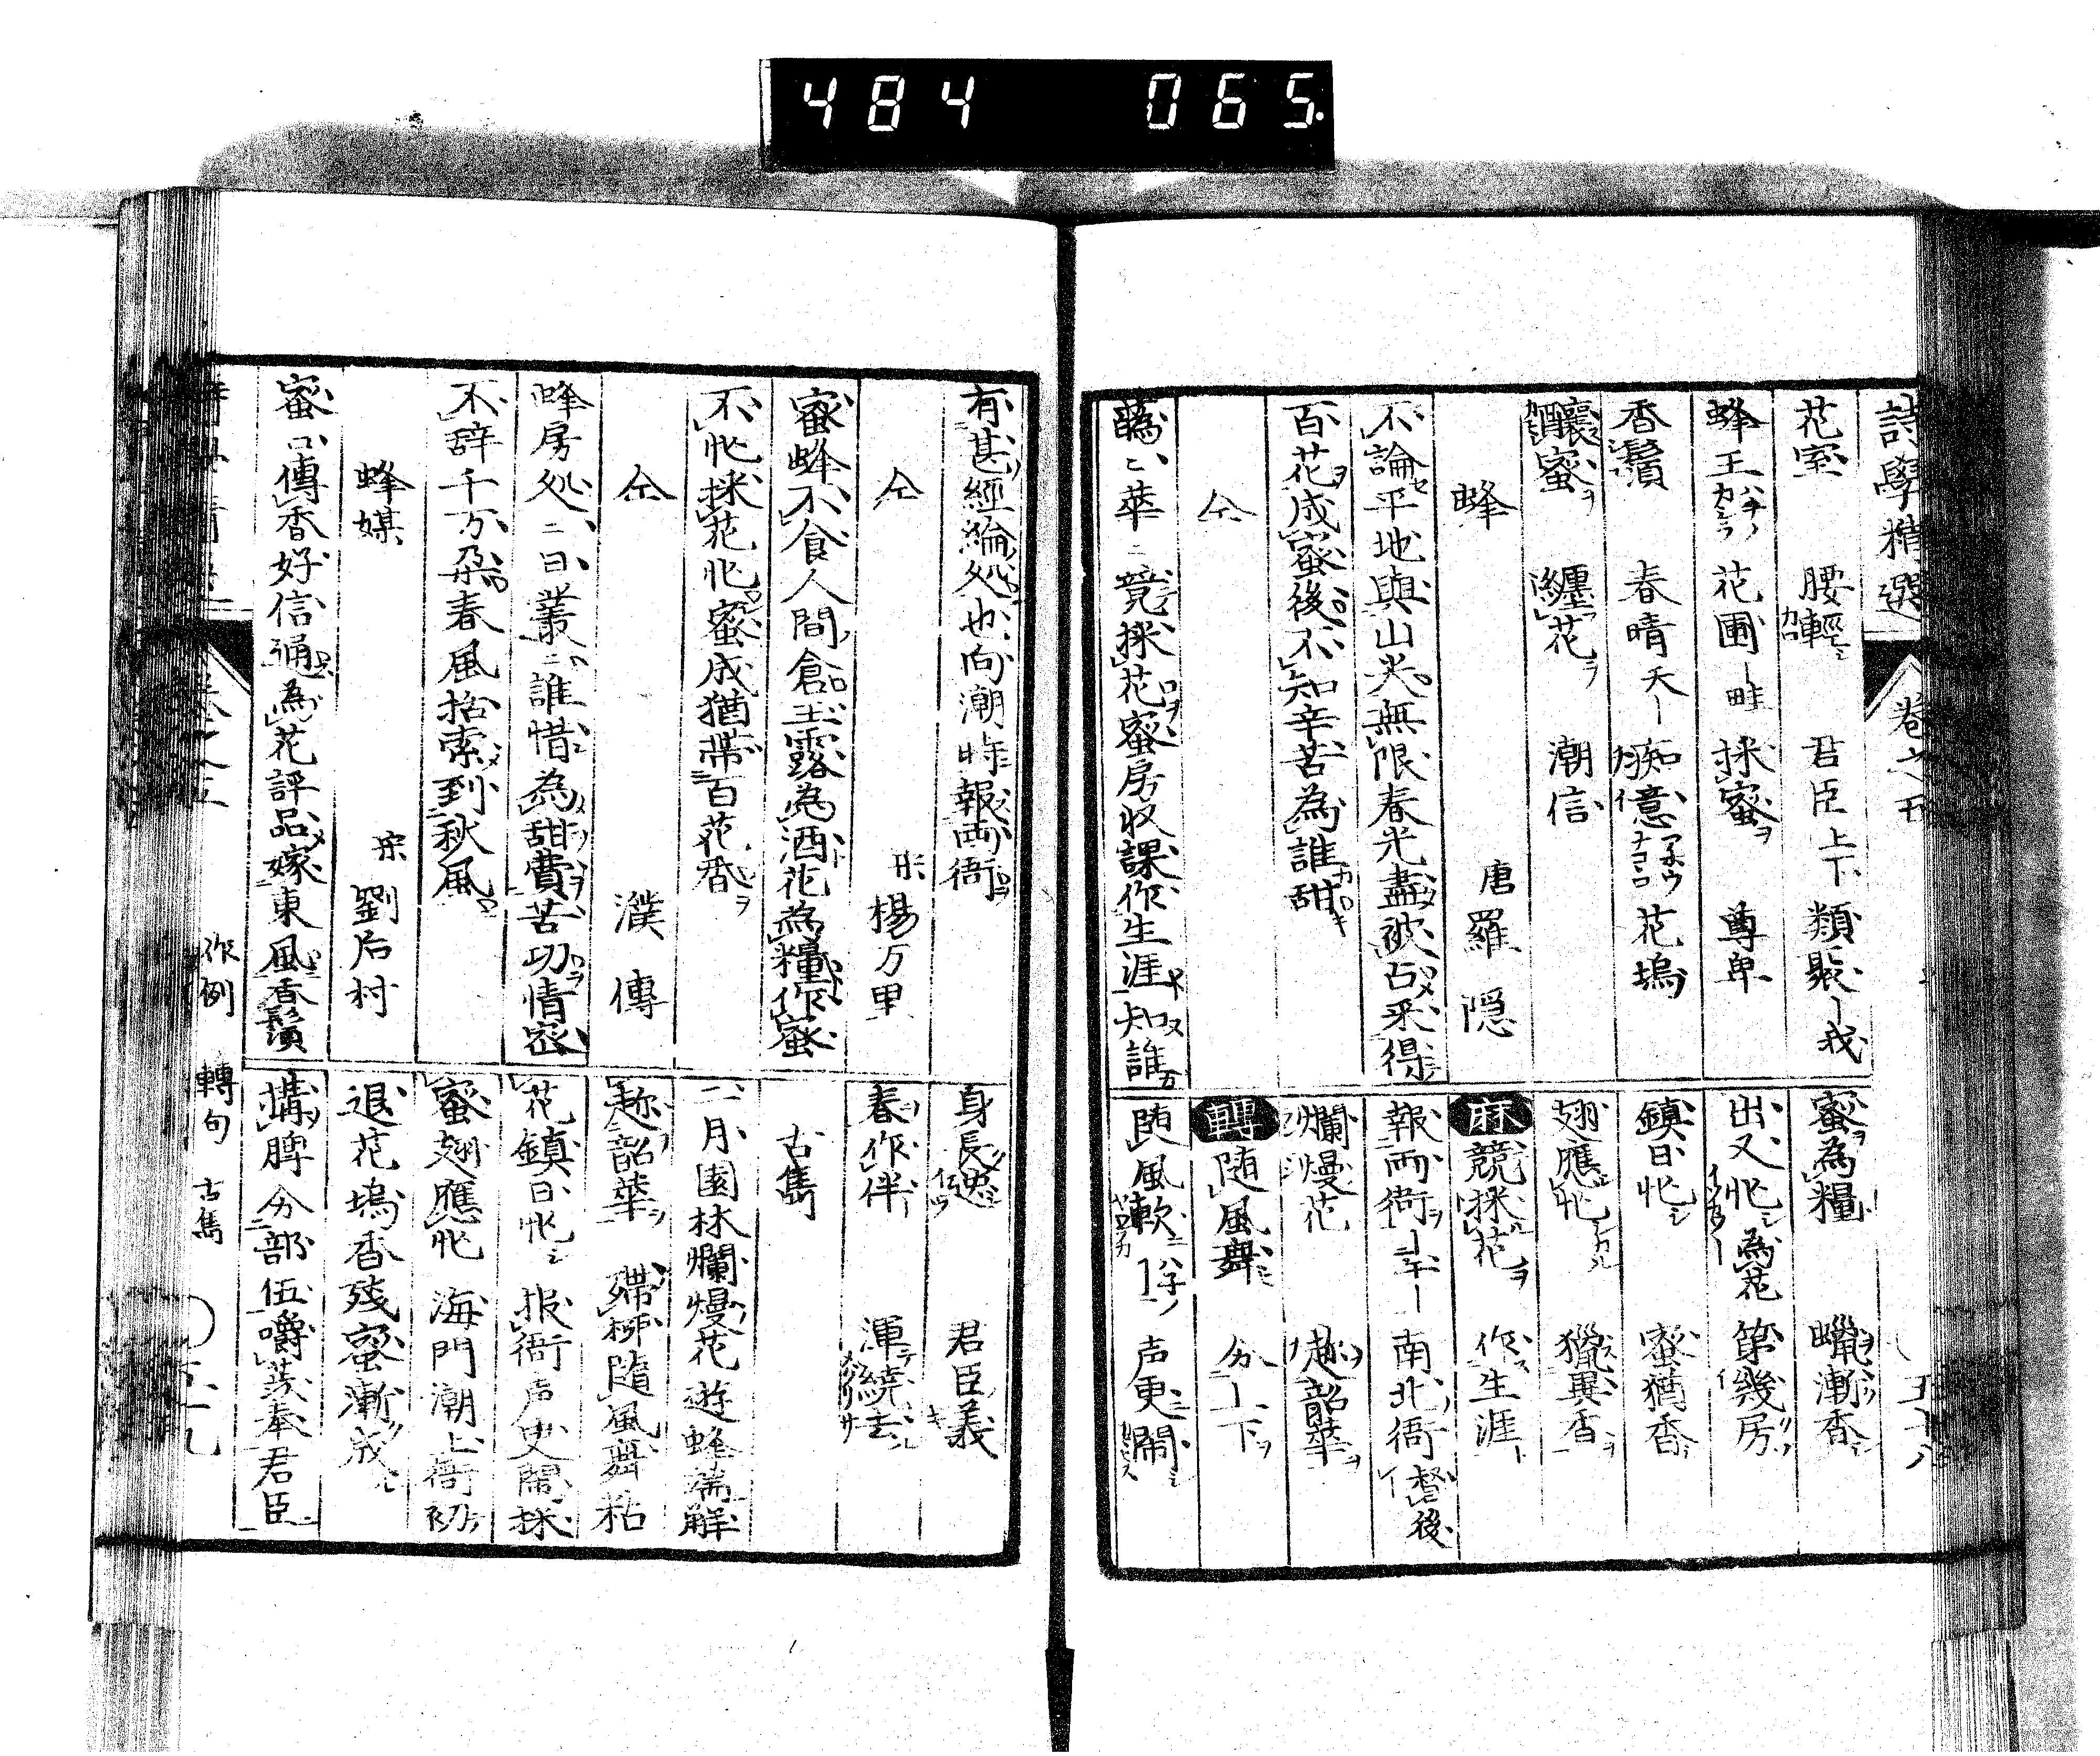 484 065.
詩學精選 卷之五
花室 腰輕 君臣上下 類聚一我
蜂王 花圃一畦 採蜜 尊卑
香鬚 春晴天一 痴億 花塢
釀蜜 纏花 潮信
蜂 唐羅隠
不論平地與山尖無限春光盡被占采得
百花成蜜後不知辛苦為誰甜
仝
蘤〻華〻競採花蜜房收課作生涯知誰
蜜為糧 蠟漸香
出又忙為花 第幾房
鎮日忙 蜜猶香
翅應忙 獵異香
麻 競採花 作生涯
報両衙 南北衙 督後
爛熳花 趂韶華
轉 随風舞 分上下
随風軟 声更閙
有甚經綸処也向潮時報両衙
仝 宋楊万里
蜜蜂不食人間倉玉露為酒花為糧作蜜
不忙採花忙蜜成猶帯百花香
仝 濮傳
蜂房処〻曰叢〻誰惜為甜費苦功情密
不辞千万朶春風拾索到秋風
蜂媒 宋劉后村
蜜口傳香好信通為花評品嫁東風香鬚
身長 君臣義
春作伴 渾繞去
古雋
二月園林爛熳花遊蜂
趂韶華 帯柳随風舞粘
花鎮日忙 报衙声更閙採
蜜翅應忙 海門潮上衙初
退花塢香残蜜漸成
分部伍嚼蕊奉君臣
作例 轉句 古雋